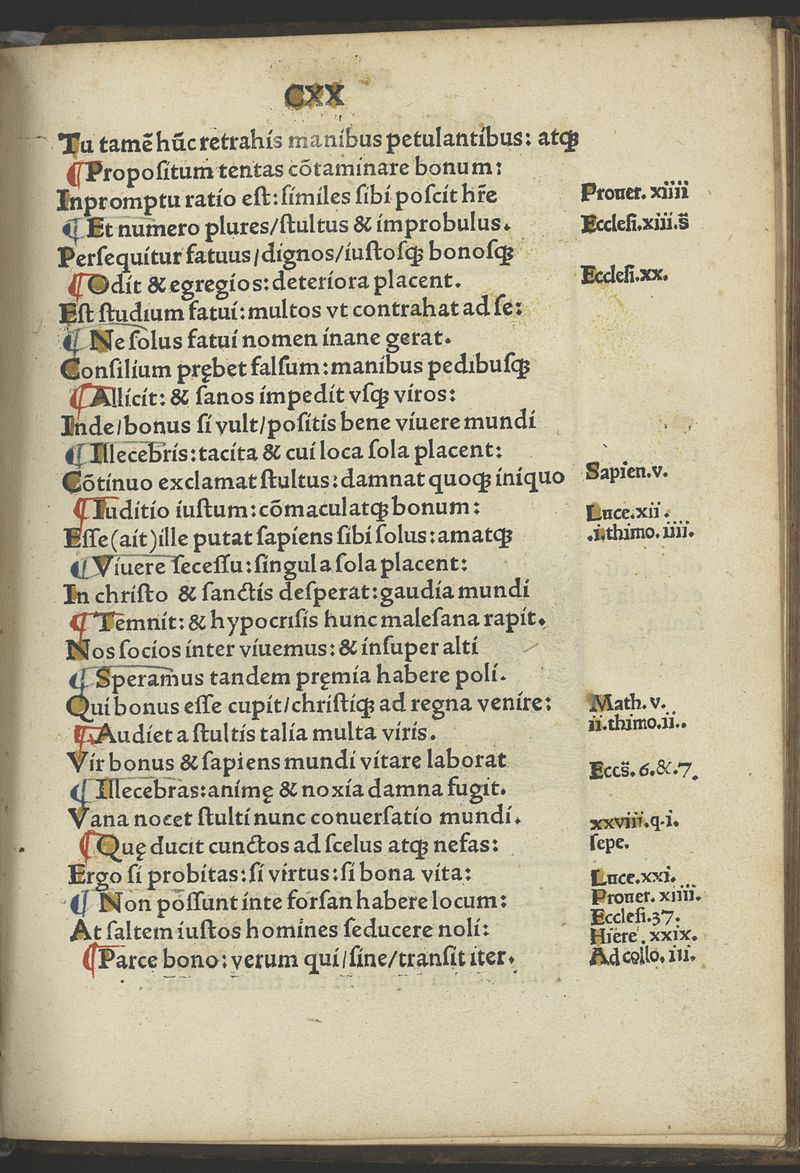 CXX
Tu tamē hūc retrahis manibus petulantibus: atqꝫ
¶Propositum tentas cōtaminare bonum:
Inpromptu ratio est: similes sibi poscit hr̄e
Prouer. xiiii
¶Et numero plures/stultus & improbulus.
Ecclesi.xiii.s̄
Persequitur fatuus/dignos/iustosqꝫ bonosqꝫ
¶Odit & egregios: deteriora placent.
Ecclesi.xx.
Est studium fatui: multos vt contrahat ad se:
¶Ne solus fatui nomen inane gerat.
Consilium prębet falsum: manibus pedibusqꝫ
¶Allicit: & sanos impedit vsqꝫ viros:
Inde/bonus si vult/positis bene viuere mundi
¶Illecebris: tacita & cui loca sola placent:
Cōtinuo exclamat stultus: damnat quoqꝫ iniquo
Sapien.v.
¶Iuditio iustum: cōmaculatqꝫ bonum:
Luce.xii.
Esse (ait) ille putat sapiens sibi solus: amatqꝫ
.i.thimo.iiii.
¶Viuere secessu: singula sola placent:
In christo & sanctis desperat: gaudia mundi
¶Temnit: & hypocrisis hunc malesana rapit.
Nos socios inter viuemus: & insuper alti
¶Speramus tandem pręmia habere poli.
Qui bonus esse cupit/christiqꝫ ad regna venire:
Math.v.
¶Audiet a stultis talia multa viris.
ii.thimo.ii..
Vir bonus & sapiens mundi vitare laborat
Eccs̄.6.&.7.
¶Illecebras: animę & noxia damna fugit.
Vana nocet stulti nunc conuersatio mundi.
xxviii.q.i.
¶Quę ducit cunctos ad scelus atqꝫ nefas:
sepe.
Ergo si probitas: si virtus: si bona vita:
Luce.xxi.
¶Non possunt inte forsan habere locum:
Prouer. xiiii.
Ecclesi.37.
At saltem iustos homines seducere noli:
Hiere.xxix.
¶Parce bono: verum qui/sine/transit iter.
Ad collo.iii.